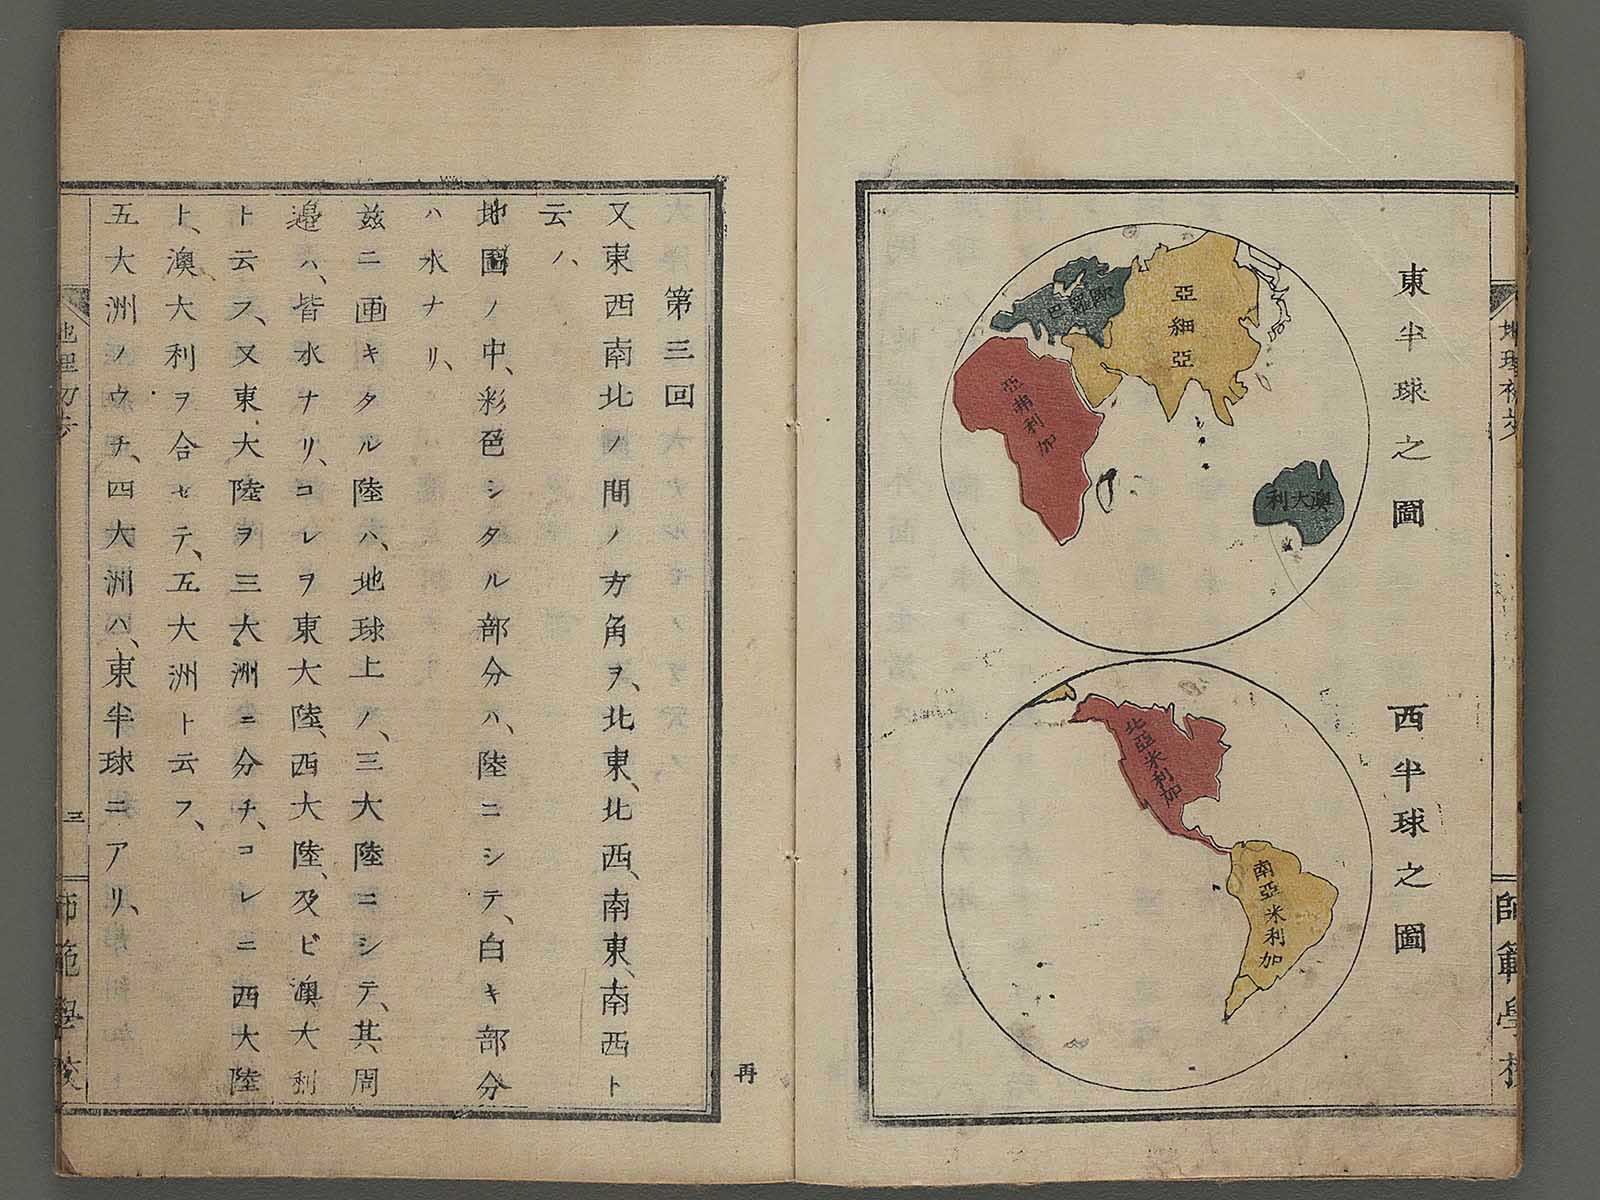 東半球之圖
亞細亞
歐羅巴
亞弗利加
澳大利
西半球之圖
北亞米利加
南亞米利加
地理初歩
師範學校
再
第三回
又東西南北ノ間ノ方角ヲ、北東、北西、南東、南西ト
云ノ、
地圖ノ中、彩色シタル部分ハ、陸ニシテ、白キ部分
ハ水ナリ、
茲ニ画キタル陸ハ、地球上ノ、三大陸ニシテ、其周
邉ハ、皆水ナリ、コレヲ東大陸、西大陸、及ビ澳大利
ト云フ、又東大陸ヲ三大洲ニ分チ、コレニ西大陸
ト、澳大利ヲ合セテ、五大洲ト云フ、
五大洲ノウチ、四大洲ハ、東半球ニアリ、
地理初歩
三
師範學校